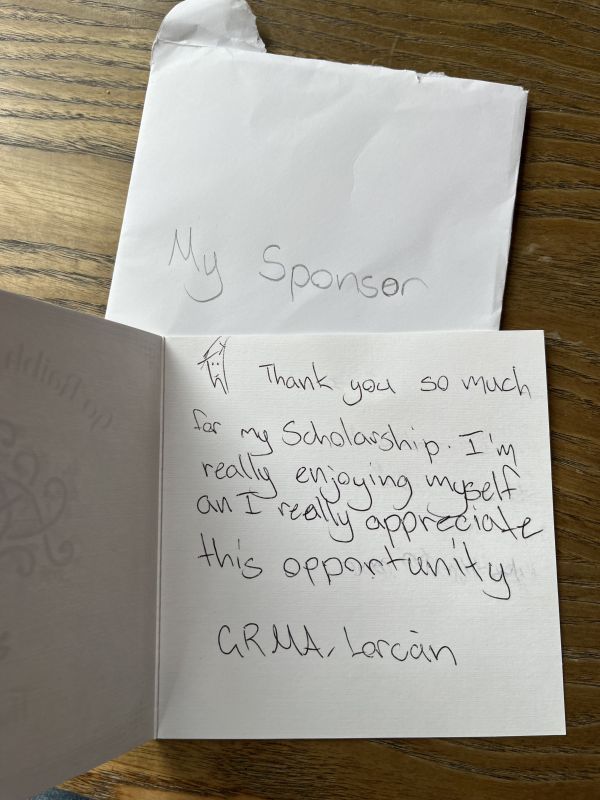 My Sponsor
Thank you so much
for my Scholarship. I'm
really enjoying myself
an I really appreciate
this opportunity
GRMA, Lorcán
Go Raibh